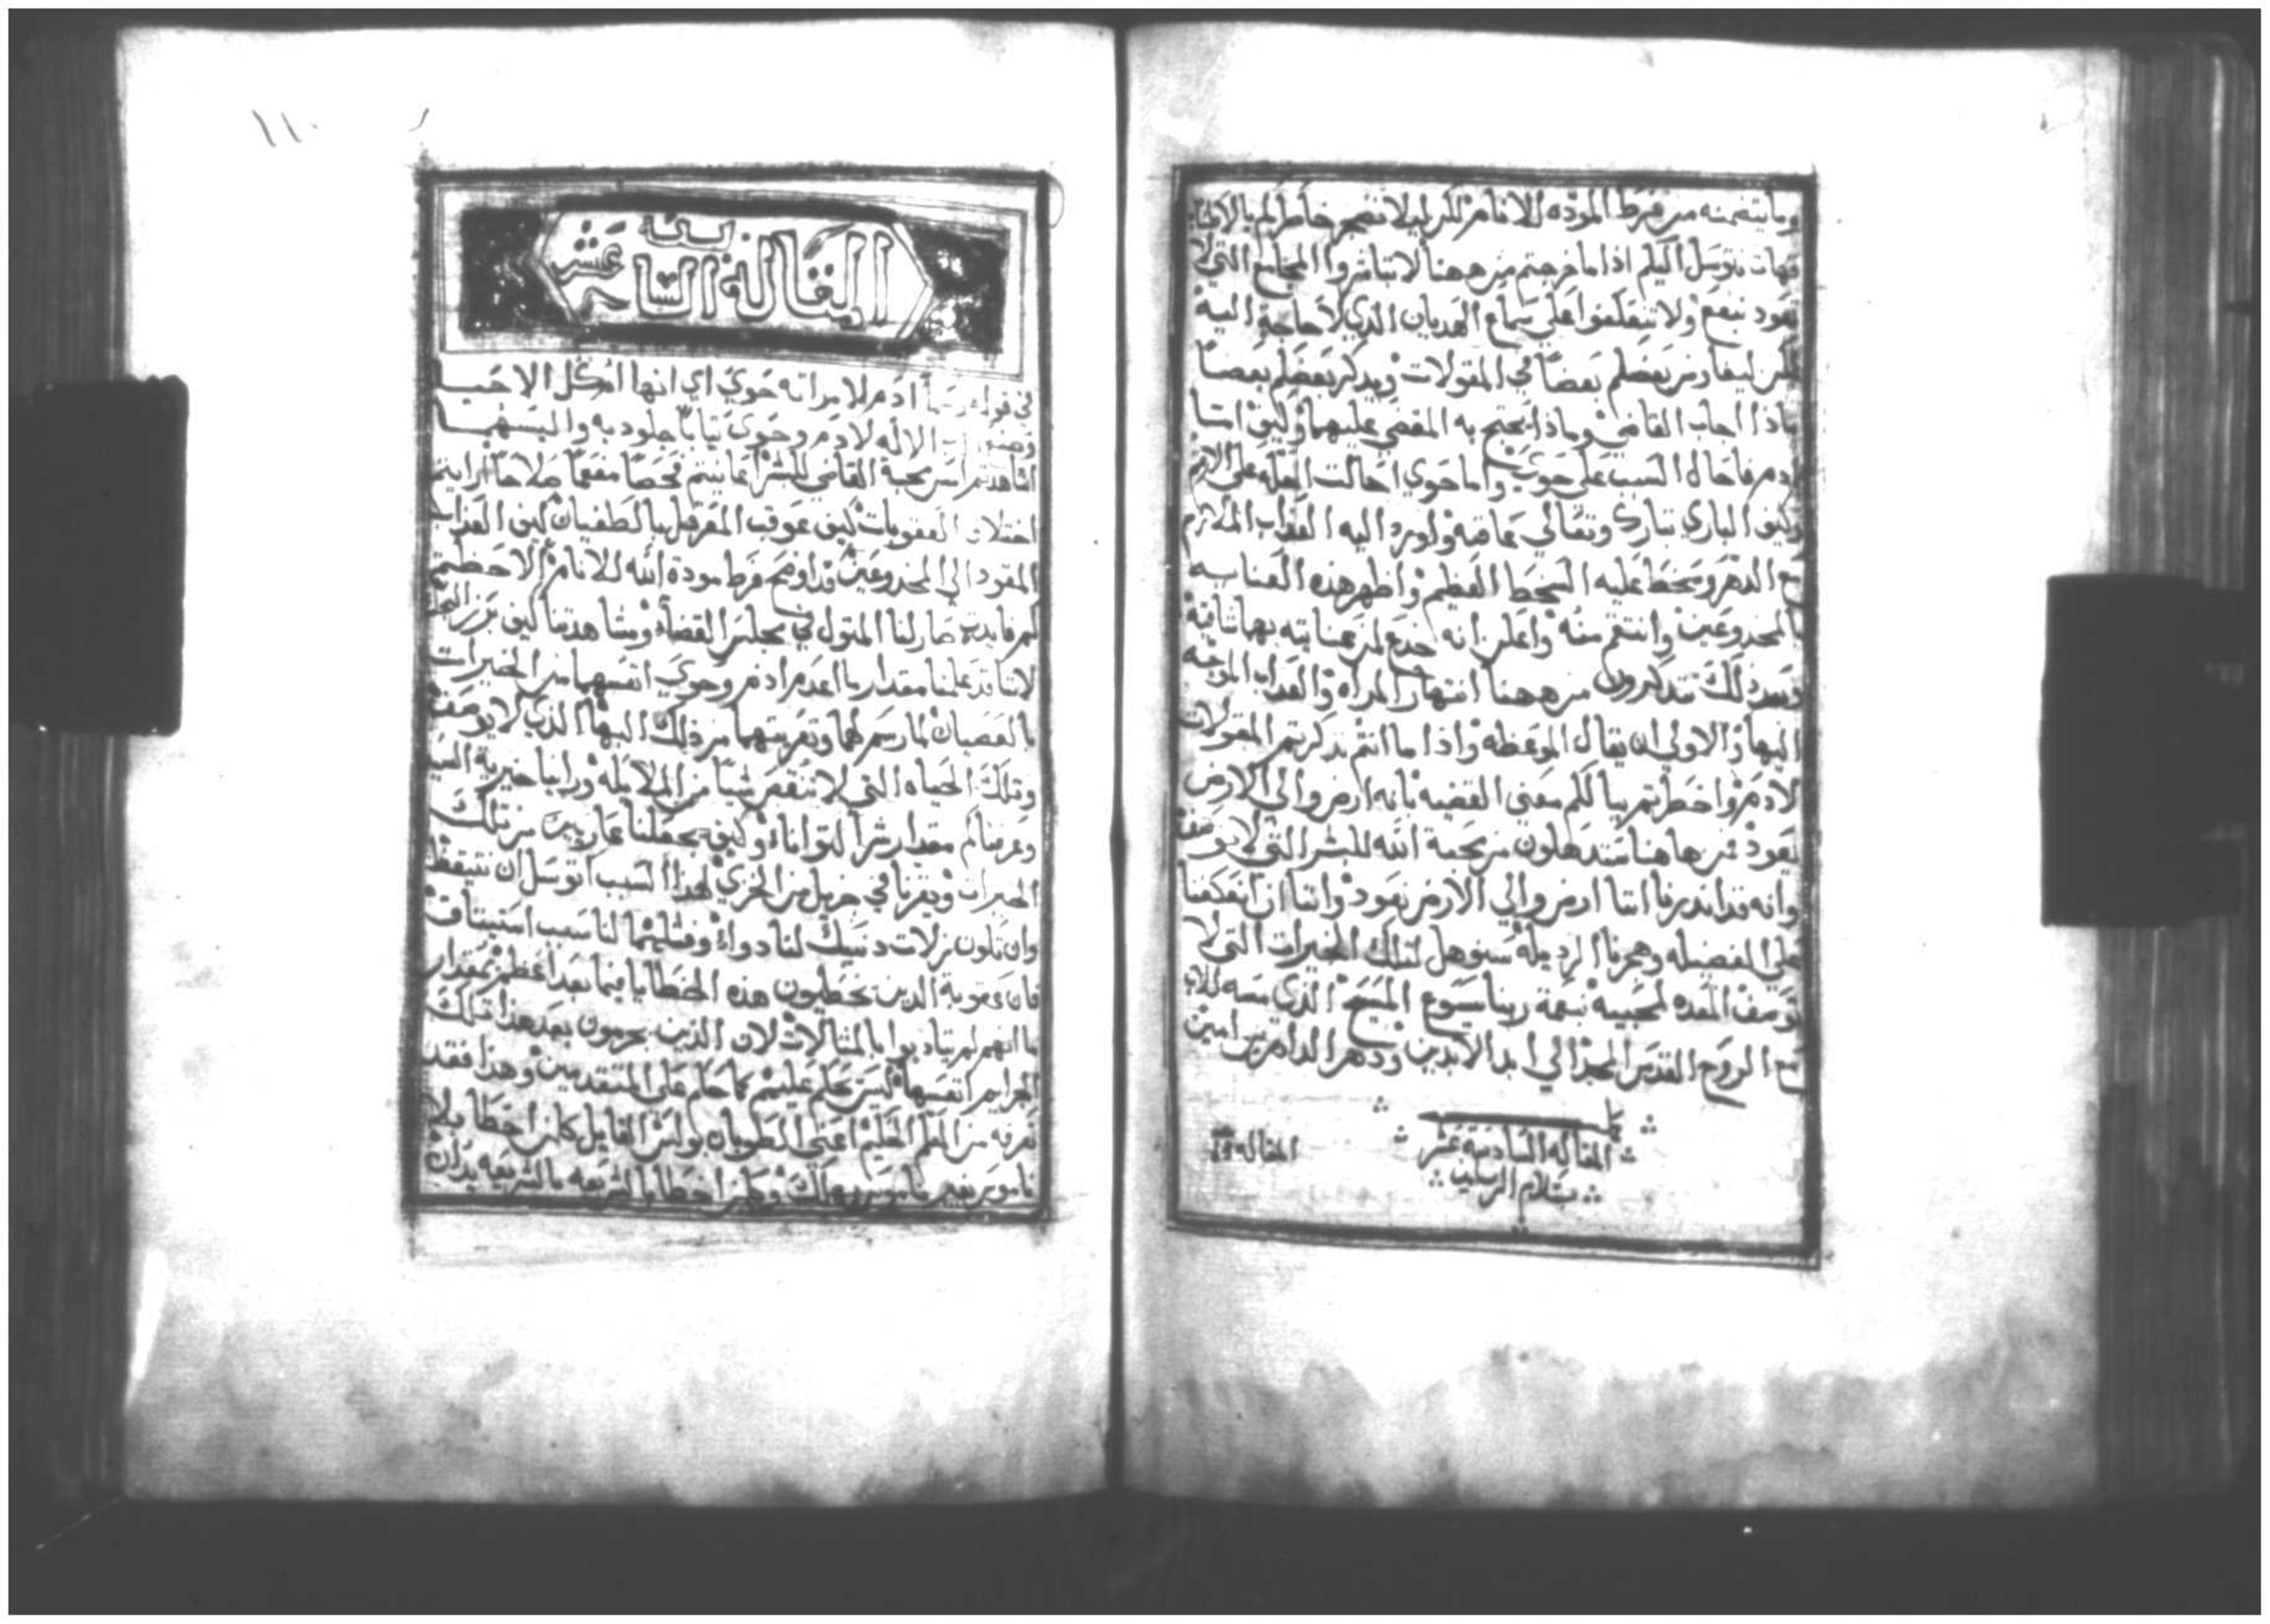 وما يتضمنه من فرط الموده للانام لكن ليلا نضجر خاطركم بالاطناب
فهات نتوسل اليكم اذا ما خرجتم من ههنا لا تباشروا المجامع التي لا
تعود بنفع ولا تتعكفوا على سماع الهديان الذي لا حاجة اليه
لكن ليفاوض بعضكم بعضًا في المقولات ويذكر بعضكم بعضًا
بماذا اجاب القاضي وماذا يحتج به المقضي عليهما وكيف
ادم فاحال السبب على حوي واما حوي احالت العله على
وكيف الباري تبارك وتعالي عاقبه واورد اليه العذاب الملازم
مع الدهر وسخط عليه السخط العظيم واظهر هذه العنايه
بالمخدوعين وانتقم منه واعلن انه خدع لمن عنايته بهما
وبعد ذلك تتذكرون من ههنا انتهار المراه والعذاب الموجه
اليها والاولي ان يقال الموعظه واذا ما انتم تذكرتم المقولات
لادم واخطرتم ببالكم معني القضيه بانه ارض والي الارض
يعود فمن هاهنا ستدهلون من محبة الله للبشر التي لا توصف
وانه قد انذرنا اننا ارض والي الارض نعود واننا ان انعكفنا
على الفضيله وهجرنا الرديله سنوهل لتلك الخيرات التي لا
توصف المعده لمحبيه بنعمة ربنا يسوع المسيح الذي معه للاب
مع الروح القدس المجد الي ابد الابدين ودهر الداهرين امين
المقاله السادسة عشر
بسلام الرب
المقاله
١١٠
المقاله الثامنة عشر
في قوله ادم لامراته حوي اي انها ام كل الاحيا
وصنع الاله لادم وحوي ثيابًا جلوديه والبسهما
اشاهدتم امس محبة القاضي للبشر اعاينتم فحصًا مفعمًا صلاحًا ارايتم
اختلاف العقوبات كيف عوقب المعرقل بالطغيان كيف العذاب
المقود الي المخدوعين قد اوضح فرط مودة الله للانام الاحظتم
كم فايده صار لنا المتول في مجلس القضاء وشاهدتنا كيف برز
لاننا قد علمنا مقدار ما اعدم ادم وحوي انفسهما من الخيرات
بالعصيان لما رسم لهما وتعريتهما من ذلك البها الذي لا يوصف
وتلك الحياه التي لا تنقص شيئا من الملايكه وراينا خيرية السيد
وعرفنا كم مقدار شر التواناء وكيف يجعلنا عاريين من تلك
الخيرات ويغرنا في جزيل من الخزي لهذا السبب اتوسل ان نتيقظ
وان تكون زلات دنيك لنا دواء وفشلهما لنا سبب استيناف
فان عقوبة الذين يخطيون هذه الخطايا فيما بعد اعظم بمقدار
ما انهم لم يتادبوا بالمثالات لان الذين يجرمون بعد هذا تلك
الجرايم انفسها ليس يحكم عليهم كما حكم على المتقدمين وهذا فقد
نعرفه من المعلم الحكيم اعني الطوبان بولس القايل كل من اخطا بلا
ناموس بغير ناموس يهلك وكل من اخطا بالشريعه بالشريعه يدان